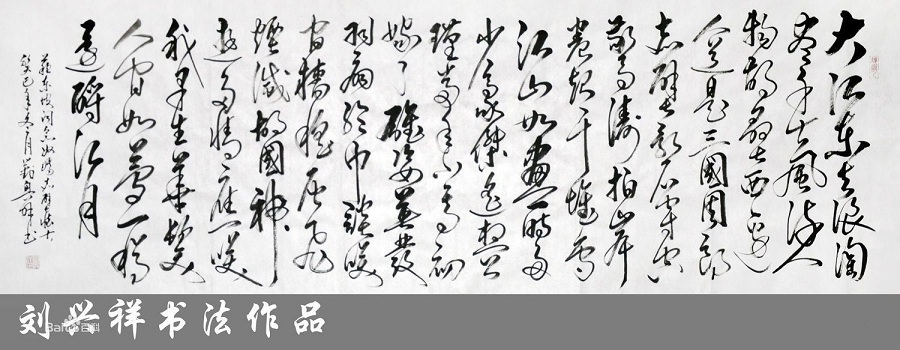 大江东去浪淘
尽千古风流人
物故垒西边
人道是三國周郎
赤壁乱石穿空
惊涛拍岸
卷起千堆雪
江山如畫一時多
少豪傑遥想公
瑾當年小乔初
嫁了雄姿英發
羽扇纶巾談笑
間檣櫓灰飞
煙滅故國神
遊多情應笑
我早生華髮
人间如夢一樽
還酹江月
苏东坡词念奴娇赤壁怀古
癸巳月刘兴祥书
刘兴祥书法作品
Baidu百科